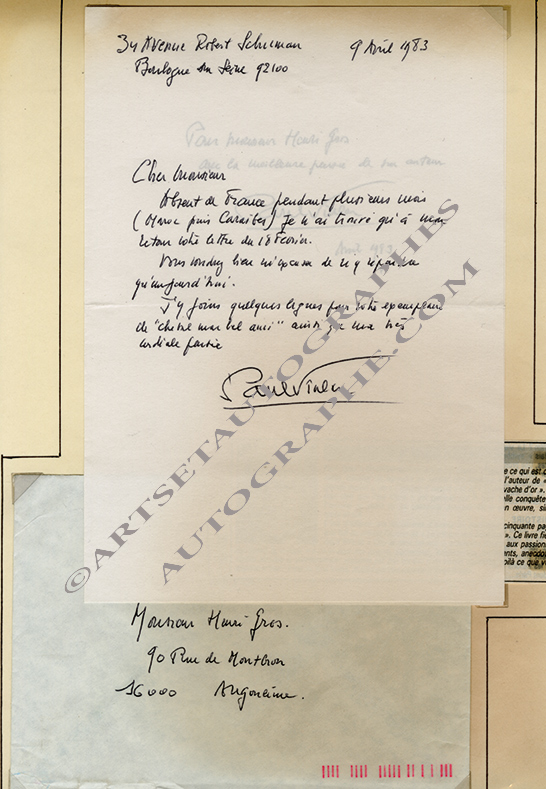 34 Avenue Robert Schuman 9 Avril 1983
Boulogne sur Seine 92100
Pour Monsieur Henri Gros.
avec la meilleure pensée de son auteur
Avril 1983
Cher Monsieur
Absent de France pendant plusieurs mois
(Maroc puis Caraïbes) Je n'ai trouvé qu'à mon
retour votre lettre du 18 Février.
Vous voudrez bien m'excuser de n'y répondre
qu'aujourd'hui.
J'y joins quelques lignes pour votre exemplaire
de "Cheval mon bel ami" ainsi que ma très
cordiale pensée
Paul Vialar
©ARTSETAUTOGRAPHES
AUTOGRAPHE.COM
e ce qui est
l'auteur de «
vache d'or »,
elle conquête
n œuvre, si
cinquante pa
». Ce livre fi
aux passion
ants, anecdo
oilà ce que v
Monsieur Henri Gros.
90 Rue de Montbron
16000 Angoulême.